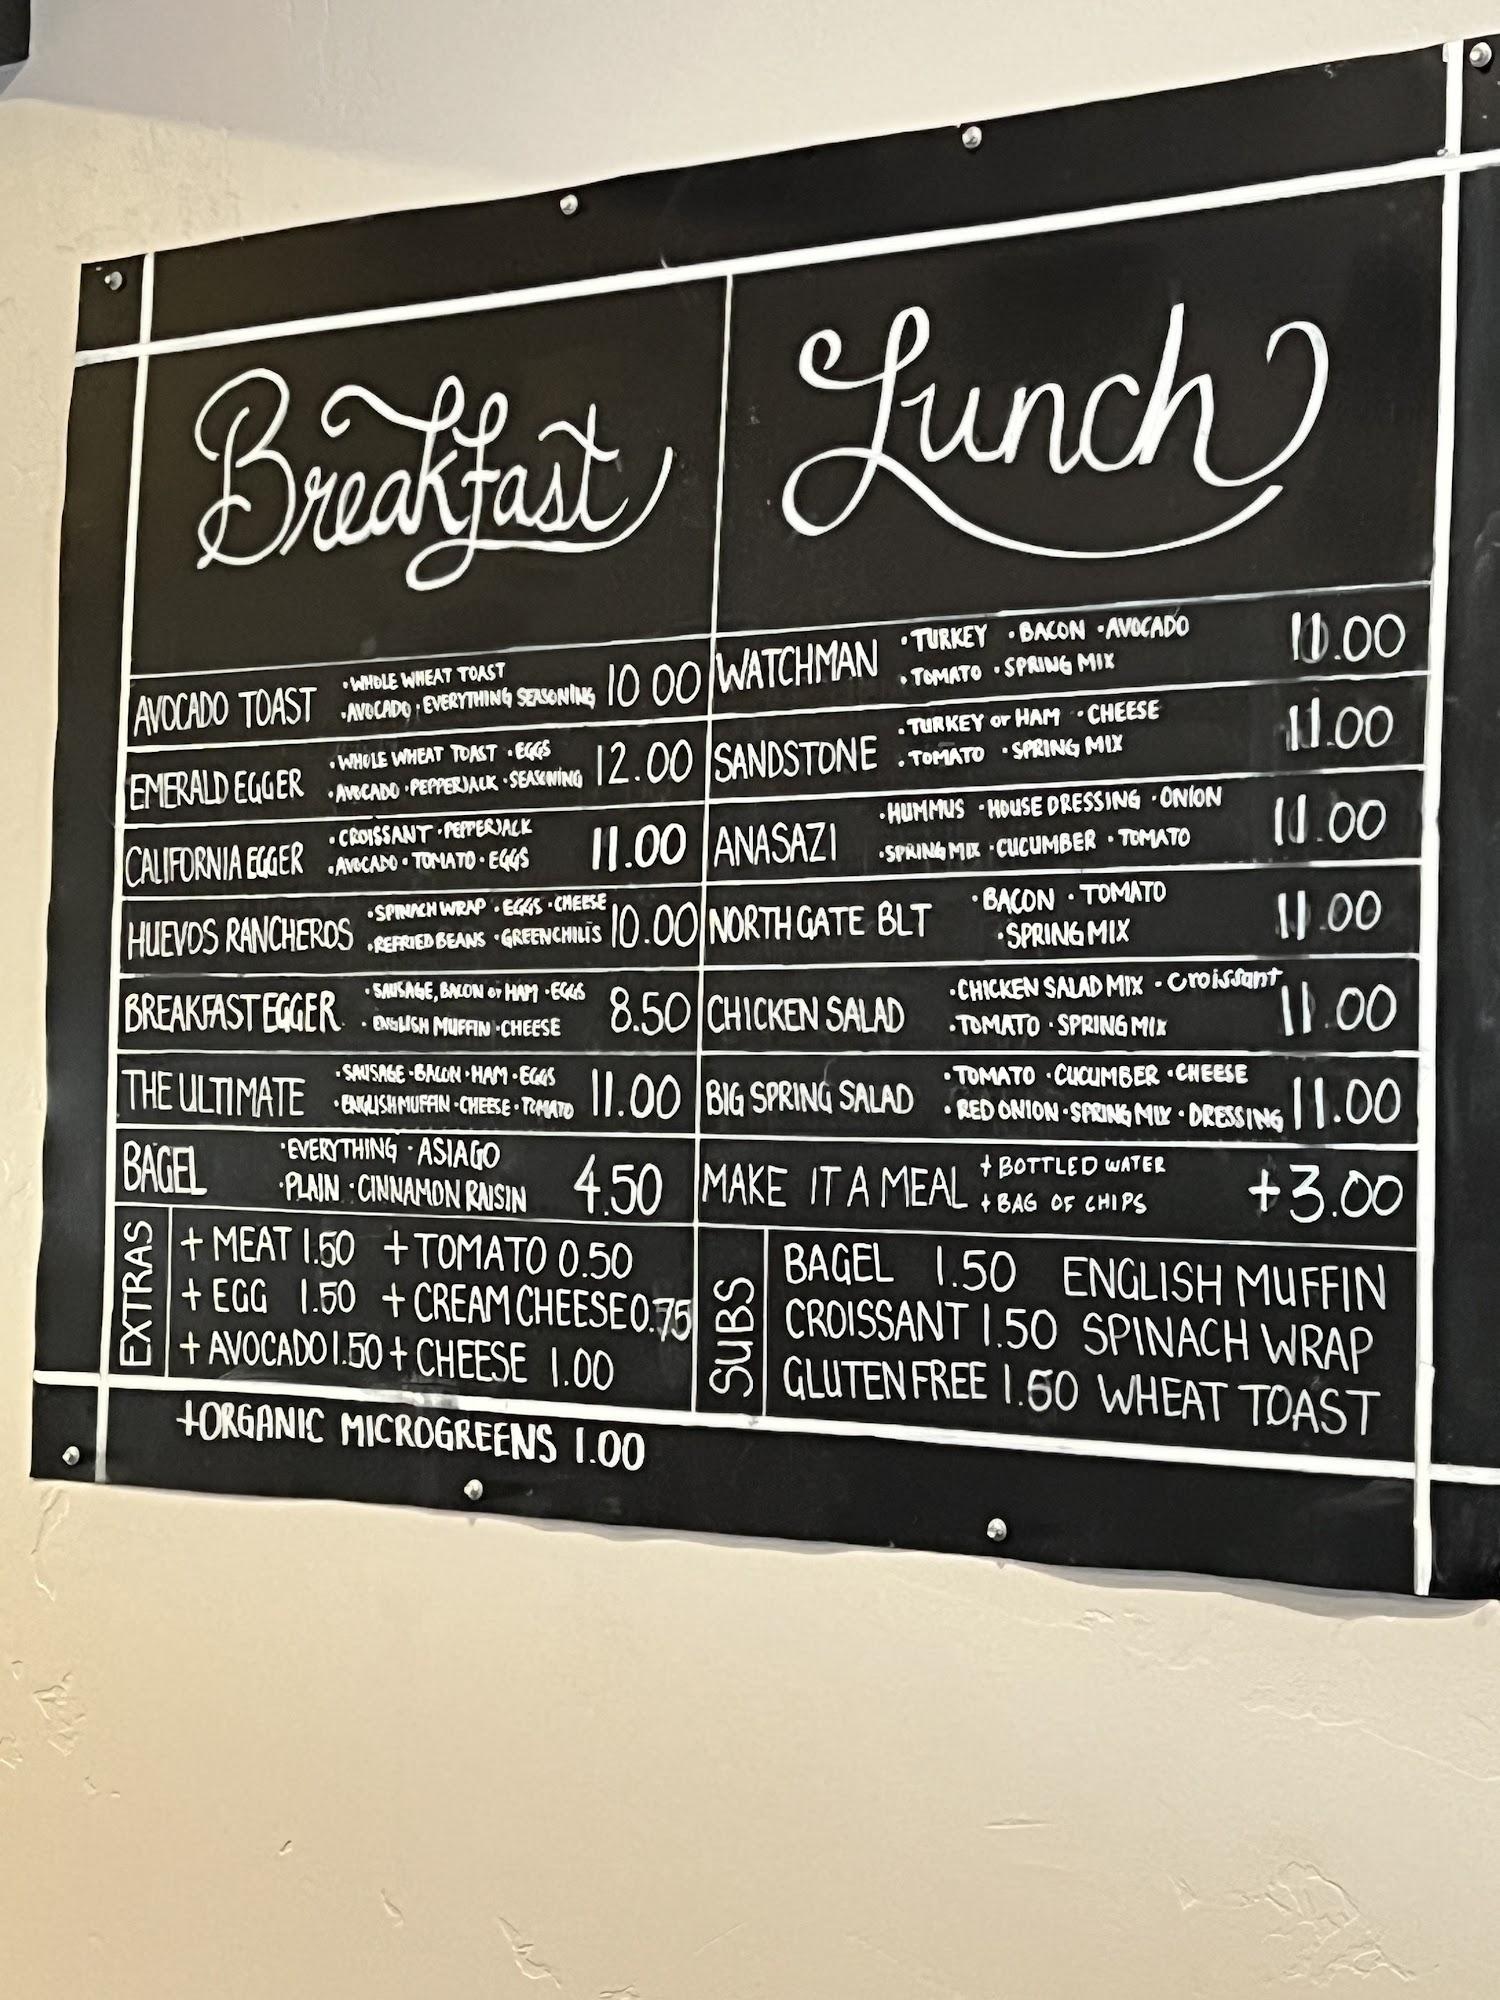 Breakfast
AVOCADO TOAST
• WHOLE WHEAT TOAST
• AVOCADO • EVERYTHING SEASONING
10 00
EMERALD EGGER
• WHOLE WHEAT TOAST • EGGS
• AVOCADO • PEPPERJACK • SEASONING
12.00
CALIFORNIA EGGER
• CROISSANT • PEPPERJACK
• AVOCADO • TOMATO • EGGS
11.00
HUEVOS RANCHEROS
• SPINACH WRAP • EGGS • CHEESE
• REFRIED BEANS • GREEN CHILIS
10.00
BREAKFAST EGGER
• SAUSAGE, BACON or HAM • EGGS
• ENGLISH MUFFIN • CHEESE
8.50
THE ULTIMATE
• SAUSAGE • BACON • HAM • EGGS
• ENGLISH MUFFIN • CHEESE • TOMATO
11.00
BAGEL
• EVERYTHING • ASIAGO
• PLAIN • CINNAMON RAISIN
4.50
EXTRAS
+ MEAT 1.50 + TOMATO 0.50
+ EGG 1.50 + CREAM CHEESE 0.75
+ AVOCADO 1.50 + CHEESE 1.00
+ORGANIC MICROGREENS 1.00
Lunch
WATCHMAN
• TURKEY • BACON • AVOCADO
• TOMATO • SPRING MIX
11.00
SANDSTONE
• TURKEY or HAM • CHEESE
• TOMATO • SPRING MIX
11.00
ANASAZI
• HUMMUS • HOUSE DRESSING • ONION
• SPRING MIX • CUCUMBER • TOMATO
11.00
NORTHGATE BLT
• BACON • TOMATO
• SPRING MIX
11.00
CHICKEN SALAD
• CHICKEN SALAD MIX • Croissant
• TOMATO • SPRING MIX
11.00
BIG SPRING SALAD
• TOMATO • CUCUMBER • CHEESE
• RED ONION • SPRING MIX • DRESSING
11.00
MAKE IT A MEAL
+ BOTTLED WATER
+ BAG OF CHIPS
+3.00
SUBS
BAGEL 1.50 ENGLISH MUFFIN
CROISSANT 1.50 SPINACH WRAP
GLUTEN FREE 1.50 WHEAT TOAST